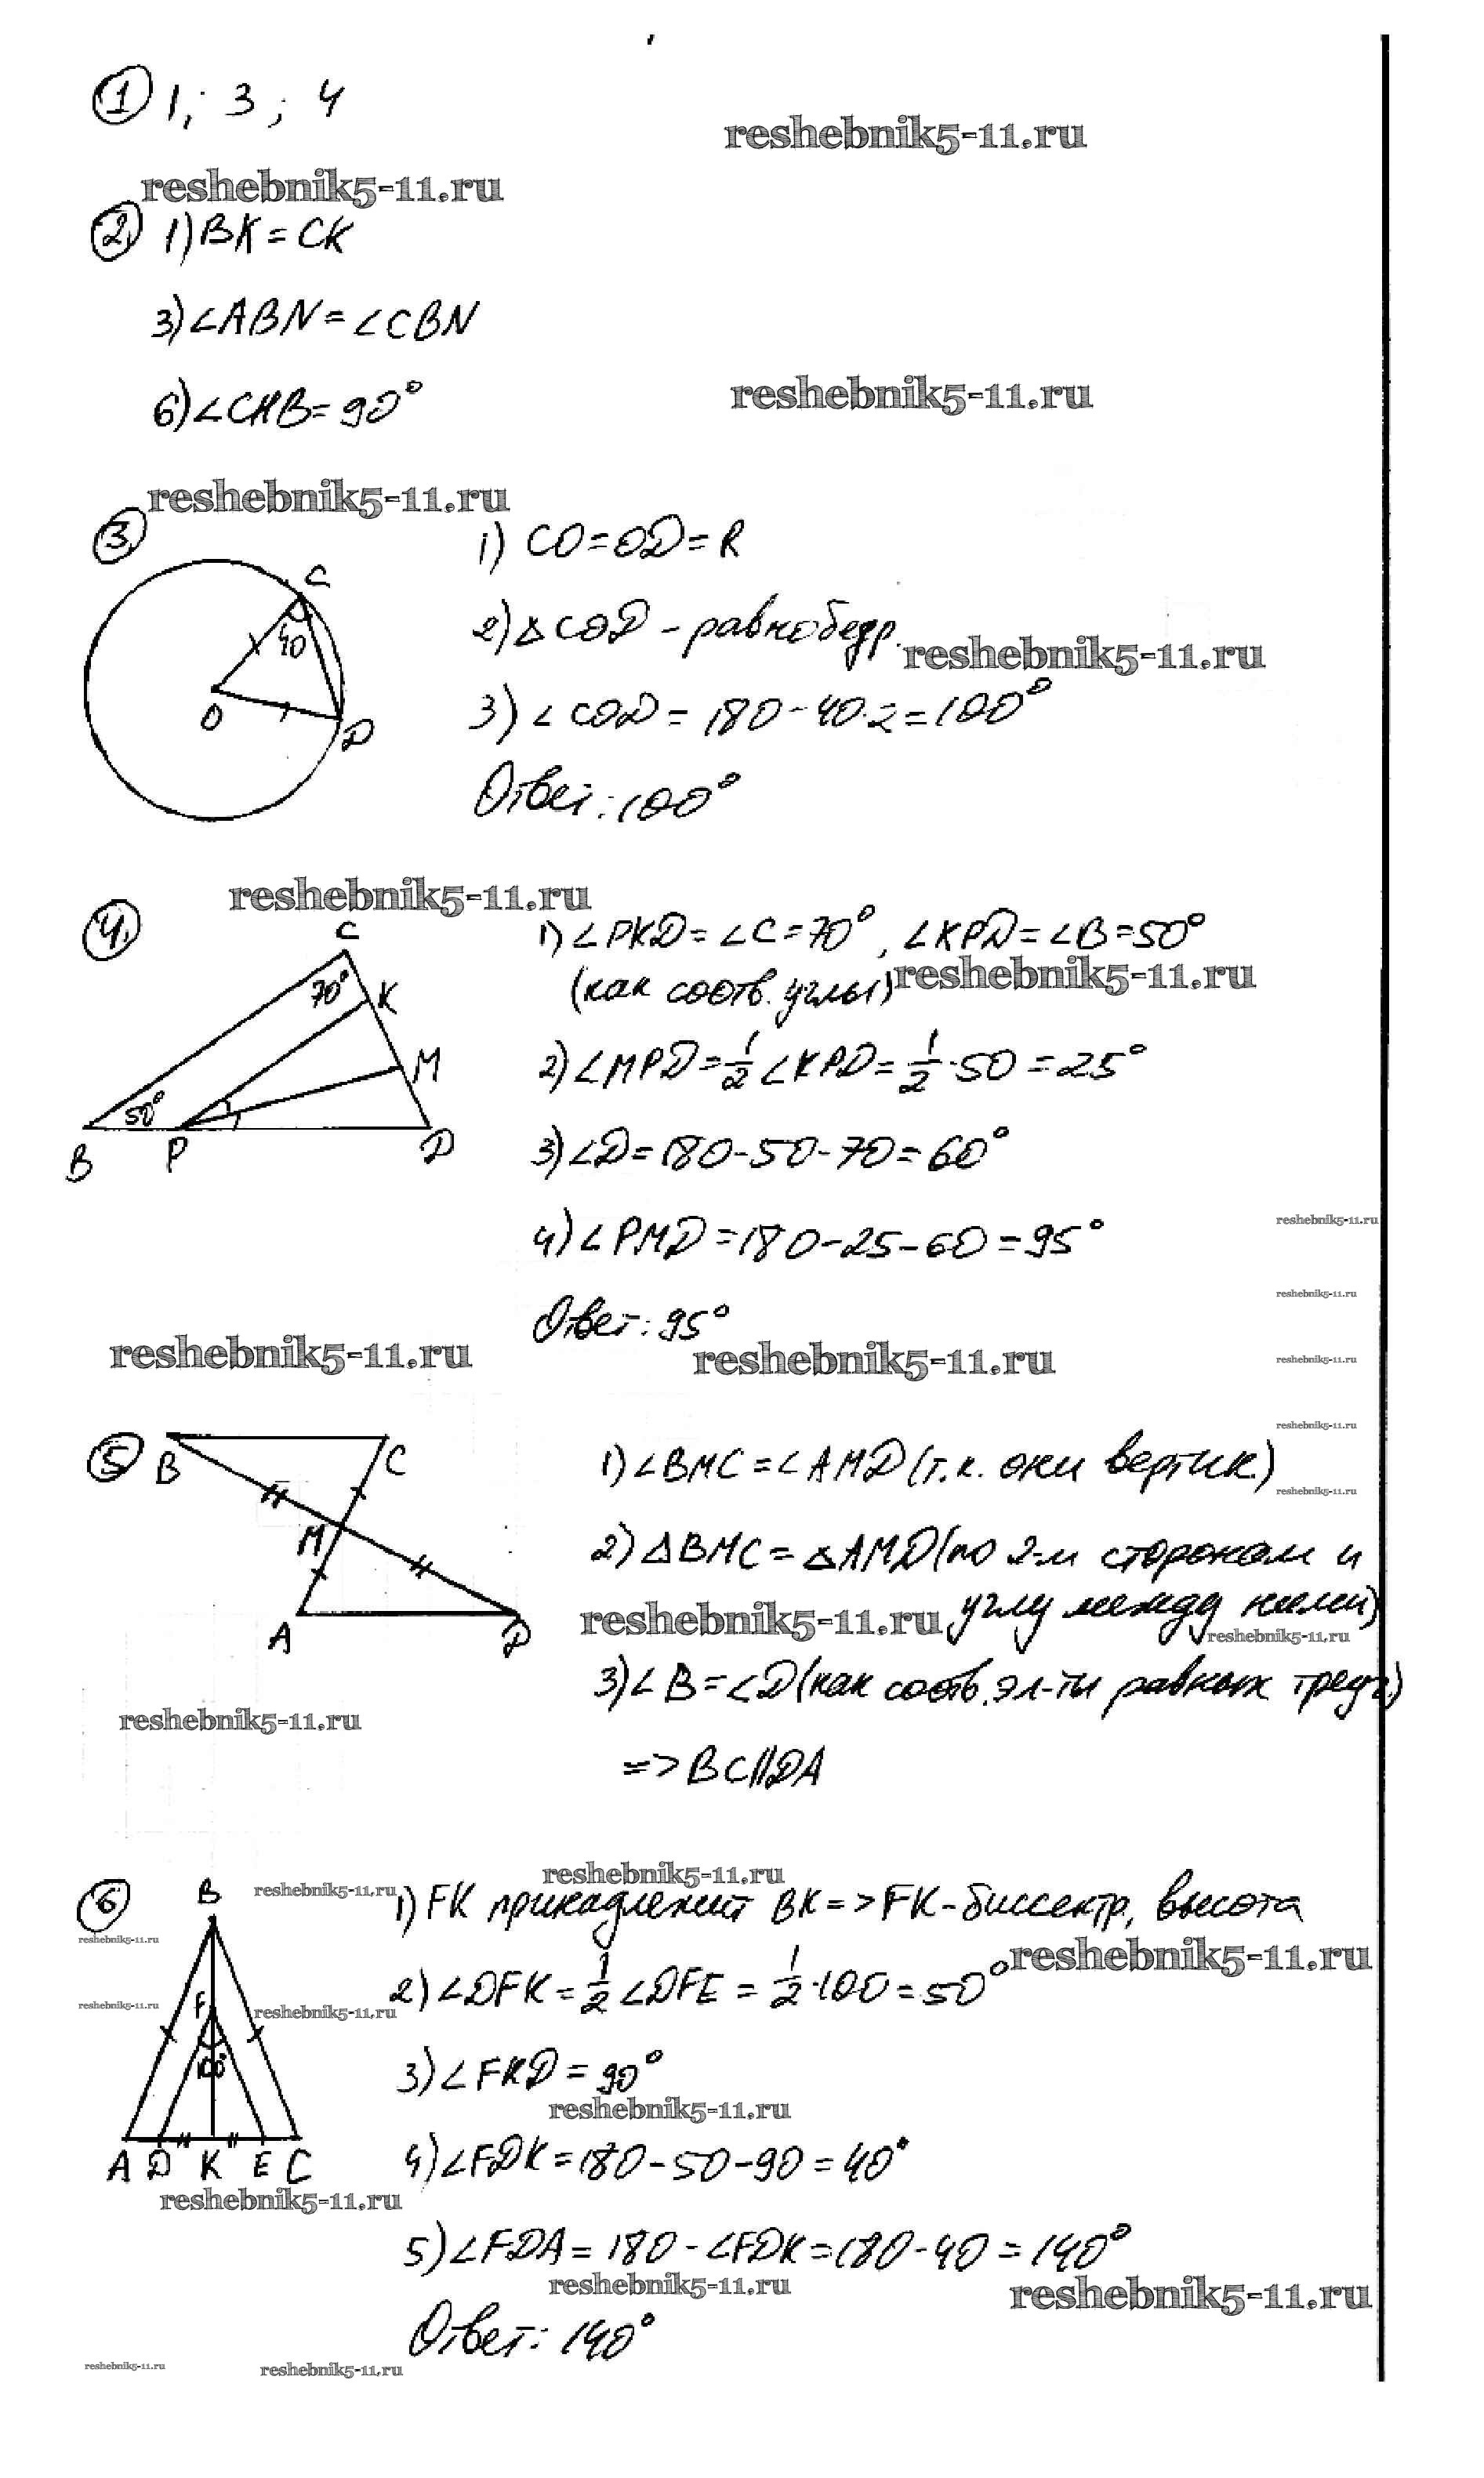 ① 1; 3; 4
reshebnik5-11.ru
reshebnik5-11.ru
② 1) BK = CK
3) ∠ABN = ∠CBN
6) ∠CHB = 90°
reshebnik5-11.ru
reshebnik5-11.ru
③
C
40
O
D
1) CO = OD = R
2) △COD – равнобедр.
reshebnik5-11.ru
3) ∠COD = 180 - 40·2 = 100°
Ответ: 100°
reshebnik5-11.ru
④
C
70°
K
M
50°
B
P
D
1) ∠PKD = ∠C = 70°, ∠KPD = ∠B = 50°
(как соотв. углы)
reshebnik5-11.ru
2) ∠MPD = 1/2 ∠KPD = 1/2 · 50 = 25°
3) ∠D = 180 - 50 - 70 = 60°
4) ∠PMD = 180 - 25 - 60 = 95°
reshebnik5-11.ru
reshebnik5-11.ru
Ответ: 95°
reshebnik5-11.ru
reshebnik5-11.ru
reshebnik5-11.ru
reshebnik5-11.ru
⑤
B
C
M
A
D
1) ∠BMC = ∠AMD (т.к. они вертик.)
reshebnik5-11.ru
2) △BMC = △AMD (по 2-м сторонам и
углу между ними)
reshebnik5-11.ru
reshebnik5-11.ru
3) ∠B = ∠D (как соотв. эл-ты равных треуг.)
reshebnik5-11.ru
=> BC || DA
reshebnik5-11.ru
⑥
B
F
100°
A D K E C
reshebnik5-11.ru
1) FK принадлежит BK => FK - биссектр, высота
reshebnik5-11.ru
reshebnik5-11.ru
2) ∠DFK = 1/2 ∠DFE = 1/2 · 100 = 50°
reshebnik5-11.ru
reshebnik5-11.ru
3) ∠FKD = 90°
reshebnik5-11.ru
4) ∠FDK = 180 - 50 - 90 = 40°
reshebnik5-11.ru
5) ∠FDA = 180 - ∠FDK = 180 - 40 = 140°
reshebnik5-11.ru
reshebnik5-11.ru
Ответ: 140°
reshebnik5-11.ru
reshebnik5-11.ru